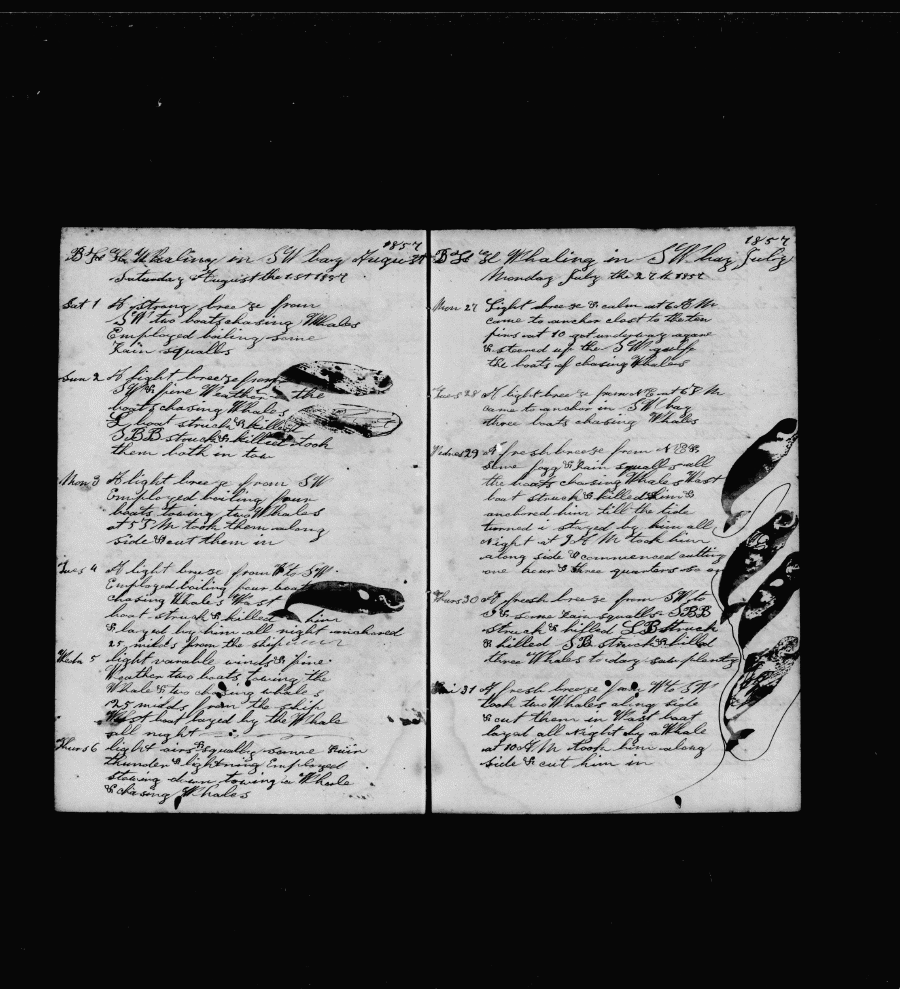 1857
Whaling in SW bay August
Saturday August the 1st 1857
Sat 1 A strong breeze from
SW two boats chasing Whales
Employed boiling some
Rain squalls
Sun 2 A light breeze from
SW & fine Weather the
boats chasing Whales
L boat struck & killed
SBB struck & killed took
them both in tow
Mon 3 A light breeze from SW
Employed boiling four
boats towing two Whales
at 5 P M took them along
side & cut them in
Tues 4 A light breeze from W to SW
Employed boiling four boats
chasing Whales Wast
boat struck & killed him
& layed by him all night anchored
25 milds from the ship
5 light varable winds & fine
Weather two boats towing the
Whale & two chasing whales
25 milds from the ship
Wast boat layed by the Whale
all night
Thurs 6 light airs & squally some Rain
thunder & lightning Employed
stowing down towing a Whale
& chasing Whales
1857
Whaling in SW bay July
Monday July the 27th 1857
Mon 27 Light breeze & calm at 6 A M
come to anchor close to the ten
pins at 10 got underway agane
& steered up the SW gulf
the boats of chasing Whales
Tues 28 A light breeze from NE at 6 P M
came to anchor in SW bay
three boats chasing Whales
29 A fresh breeze from
some fogg & Rain squalls all
the boats chasing Whales Wast
boat struck & killed him &
anchored him till the tide
turned i stayed by him all
Night at A M took him
along side & commenced cutting
one hour & three quarters
Thurs 30 A fresh breeze from SW to
some Rain squalls SBB
struck & killed LB struck
& killed SB struck & killed
three Whales to day saw planty
31 A fresh breeze from W to SW
took two Whales along side
& cut them in Wast boat
layed all Night by a Whale
at 10 A M took him along
side & cut him in